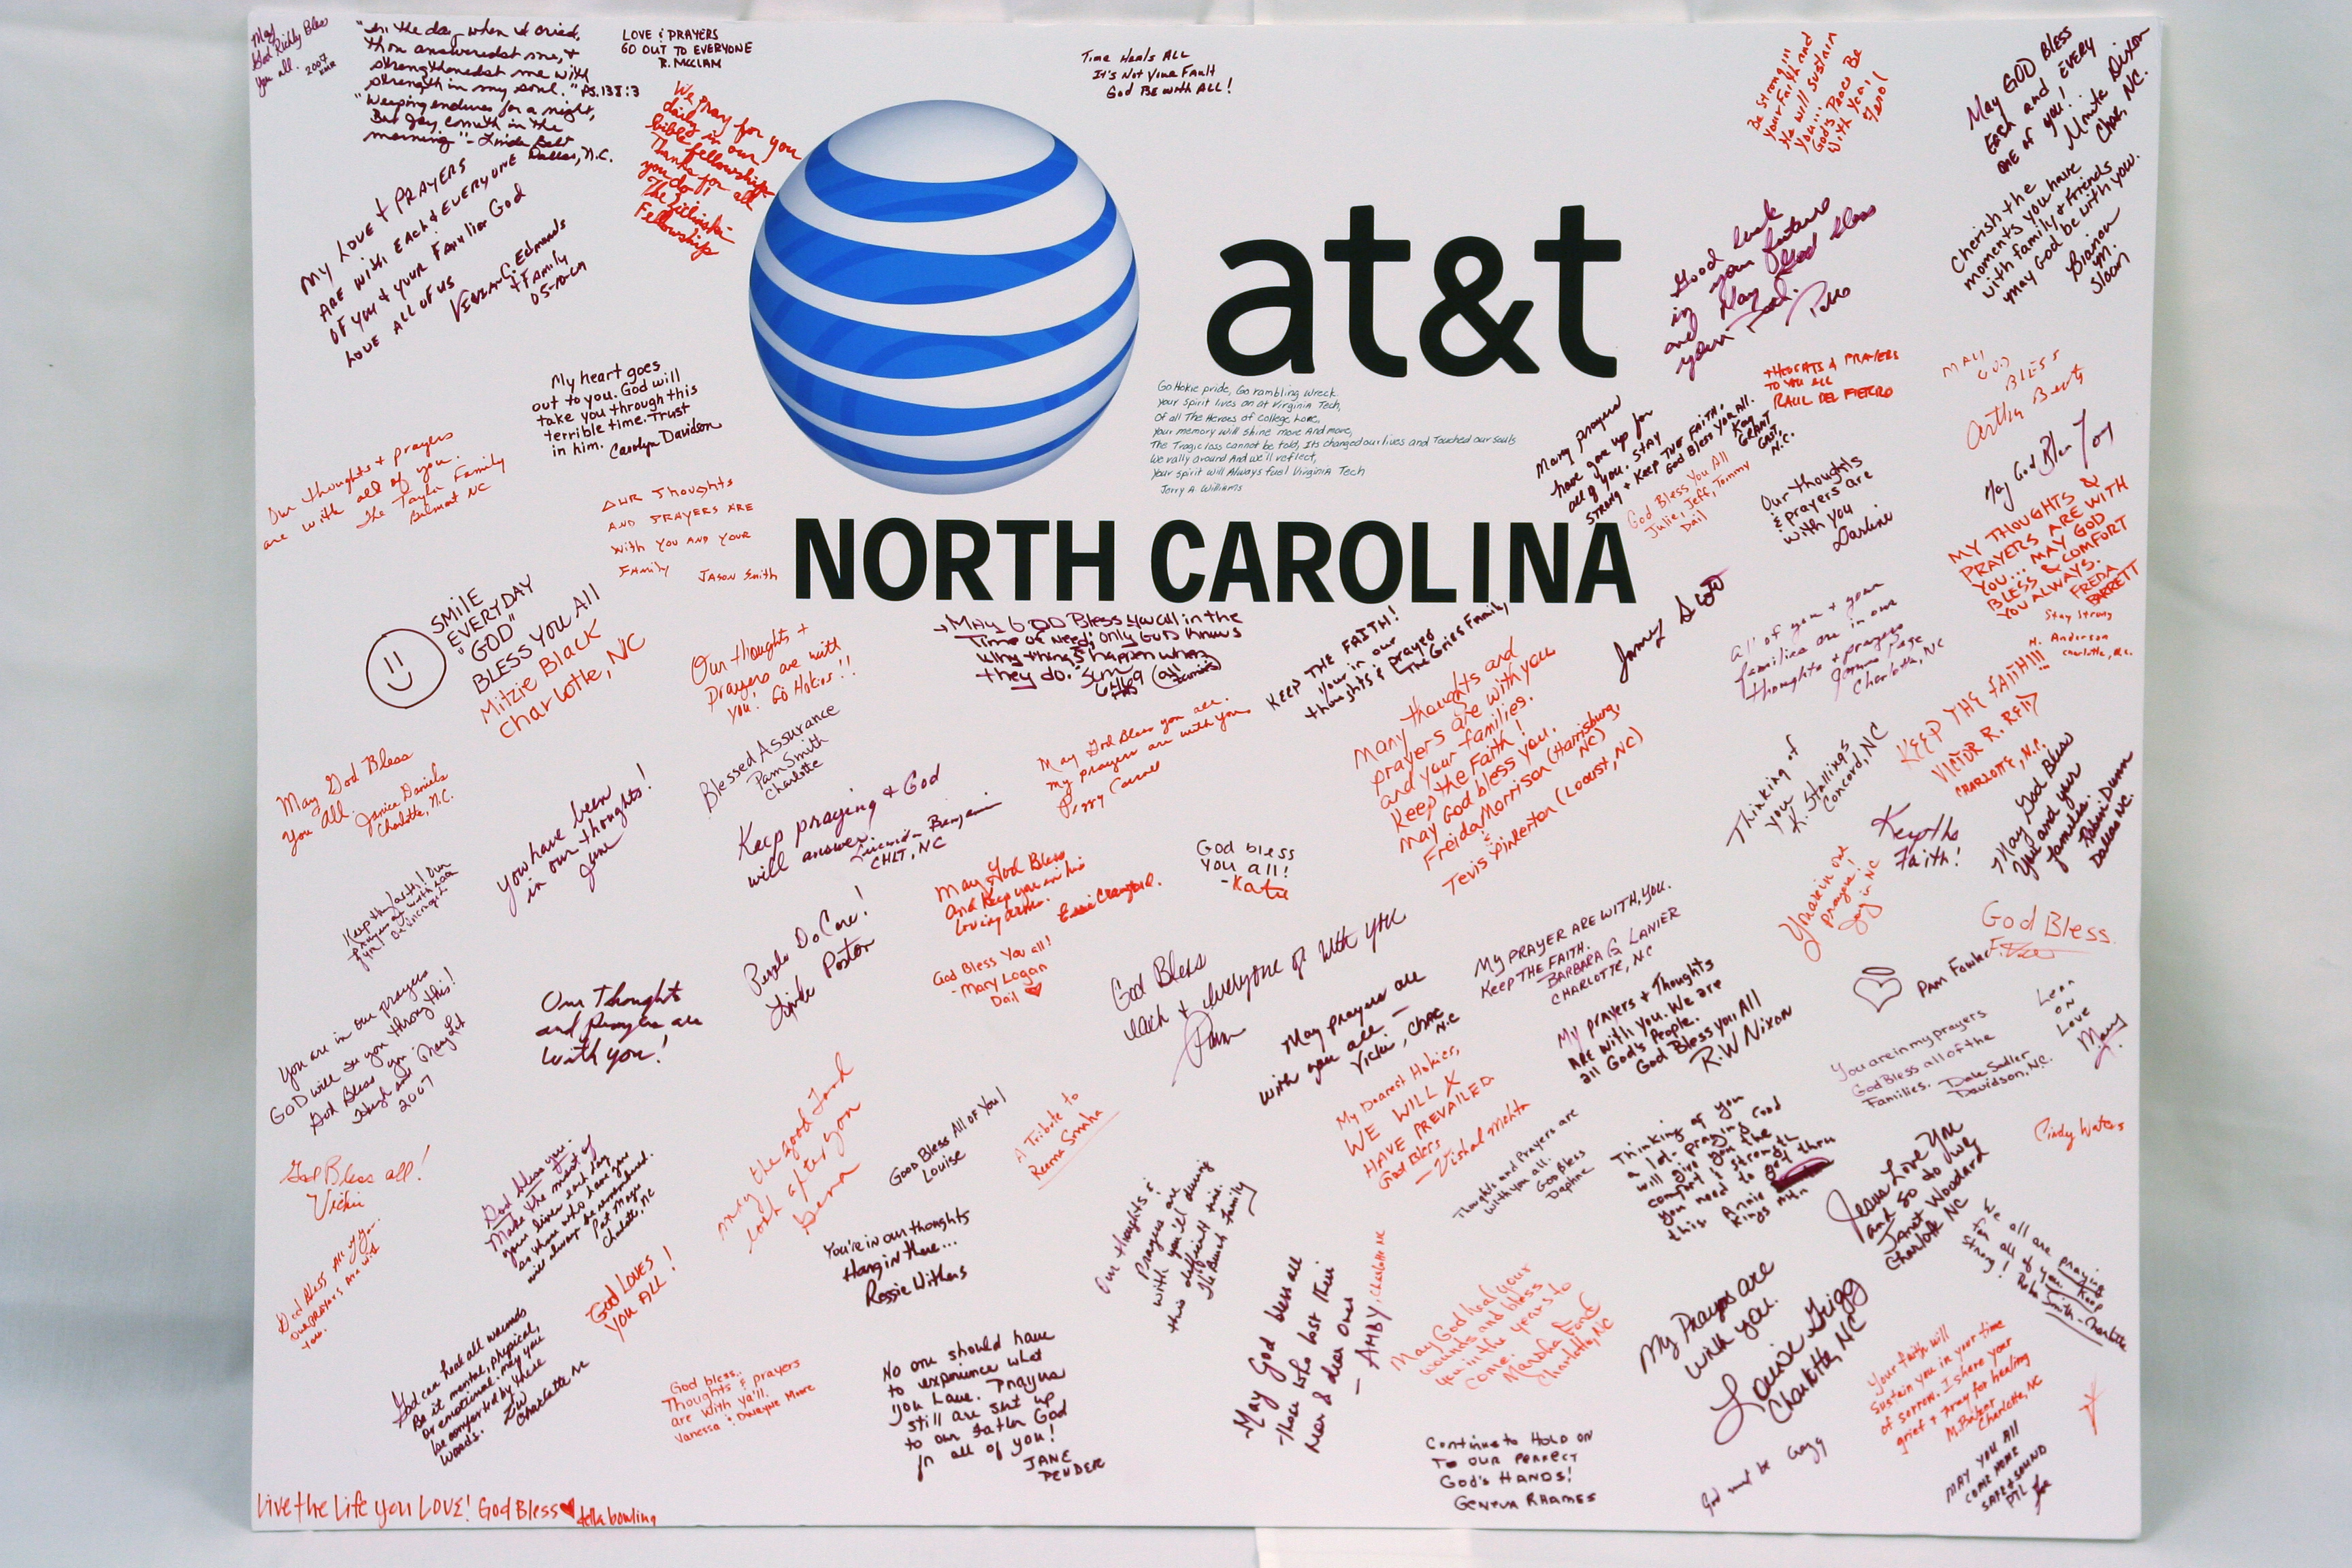 May
God Richly Bless
you all. 2007
"In the day when I cried,
thou answeredst me, &
strengthenedst me with
strength in my soul." Ps. 138:3
"Weeping endures for a night,
But joy cometh in the
morning"
Dallas, N.C.
LOVE & PRAYERS
GO OUT TO EVERYONE
R. MCCLAM
We pray for you
daily in our
bible fellowship.
Thanks for all
you do!
The
Fellowship
Time Heals ALL
It's Not Your Fault
God Be with ALL!
Be Strong!!
Your Faith and
He will sustain
You... God's Peace Be
With Ya'll
May GOD BLESS
Each and EVERY
ONE of you!
Monita Dixon
Char, NC.
Cherish the
moments you have
with family & friends
may God be with you.
Brianow
M.
Sloan
MY LOVE & PRAYERS
ARE WITH EACH & EVERYONE
OF YOU & YOUR FAMILIES God
LOVE ALL OF US
VIVIAN C. Edmonds
& Family
at&t
Good luck
in your future
and May God bless
your
Go Hokie pride, Go rambling wreck
Your Spirit lives on at Virginia Tech,
Of all The Heroes of College Lore,
Your memory will shine more And more,
The Tragic loss cannot be told, Its changed our lives and Touched our souls
We rally around And we'll reflect,
Your spirit will Always fuel Virginia Tech
Jerry A. Williams
THOUGHTS & PRAYERS
TO YOU ALL
RAUL DEL FIERRO
MAY
GOD
BLESS
My heart goes
out to you. God will
take you through this
terrible time. Trust
in him. Carolyn Davidson
Many prayers
have gone up for
all of you. Stay
STRONG & KEEP YOUR FAITH.
GOD BLESS YOU ALL.
Kay
GRANT
GAST,
N.C.
God Bless You All
Julie, Jeff, Tommy
Dail
Our thoughts
& prayers are
with you
Darline
May God Bless You
Our thoughts & prayers
are with all of you.
The Taylor Family
Belmont NC
OUR THOUGHTS
AND PRAYERS ARE
WITH YOU AND YOUR
FAMILY JASON Smith
NORTH CAROLINA
MY THOUGHTS &
PRAYERS ARE WITH
YOU... MAY GOD
BLESS & COMFORT
YOU ALWAYS.
FREDA
BARRETT
Stay Strong
H. Anderson
Charlotte, N.C.
SMILE
EVERYDAY
"GOD"
BLESS YOU All
Mitzie Black
Charlotte, NC
Our thoughts +
prayers are with
you! Go Hokies!!
MAY GOD Bless you all in the
Time of need; only GOD knows
why things happen when
they do.
KEEP THE FAITH!
Your in our
thoughts & prayers
The Gries Family
Jamey Scott
All of you & your
families are in our
thoughts & prayers
Charlotte, NC
KEEP THE FAITH!!!
VICTOR R. REID
CHARLOTTE, N.C.
Many thoughts and
prayers are with you
and your families.
Keep the Faith!
May God bless you.
Freida Morrison (Harrisburg, NC)
&
Tevis Pinkerton (Locust, NC)
Blessed Assurance
Pam Smith
Charlotte
May God Bless you all.
My prayers are with you.
Perry Carroll
May God Bless
You All. Janice Daniels
Charlotte, N.C.
you have been
in our thoughts!
June
Keep praying & God
will answer.
Lucinda Benjamin
CHLT, NC
Thinking of
you
K. Stallings
Concord, NC
Keep the
Faith!
May God Bless
You and your
families.
Robin Dunn
Dallas NC.
God bless
you all!
-Katie
May God Bless
and keep you in his
loving arms. Essie Crawford.
God Bless You all!
-Mary Logan
Dail
People Do Care!
Linda Poston
You are in our
prayers!
Joy in NC
God Bless.
Pam Fowler
God Bless
each & everyone of with you
Pam
My PRAYER ARE WITH, YOU.
KEEP THE FAITH.
BARBARA G LANIER
CHARLOTTE, NC
My prayers & Thoughts
ARE with you. We are
all God's People.
God Bless you All
R.W Nixon
Lean
on
Love
Mary
You are in our prayers
GOD will see you through this!
God Bless you
2007
Our Thoughts
and prayers are
with you!
May prayers are
with you all -
Vicki, Char
N.C
You are in my prayers
God Bless all of the
Families. Dale Sadler
Davidson, NC.
My Dearest Hokies,
WE WILL X
HAVE PREVAILED
God Bless
- Vishal Mehta
Cindy Waters
May the good Lord
look after you
God Bless All of You!
Louise
A Tribute to
Reema Smaha
God Bless all!
Vickie
God bless you.
Make the most of
your lives each day
as those who have you
will always be remembered.
Pat Mayer
Charlotte, NC
Thoughts and Prayers are
with you all.
God Bless
Daphne
Thinking of you
a lot - praying God
will give you the
comfort & strength
you need to get thru
this. Annie
Kings Mtn
Jesus Love You
and so do we
Janet Woodard
Charlotte NC
We all are praying
for all of you. Keep
strong! Robin Smith - Charlotte
You're in our thoughts
Hang in there...
Rossie Withers
Our thoughts &
Prayers are
with you'll during
this difficult time.
The Bunch family
God Bless All of you.
Our prayers are with
you.
God LOVES
YOU ALL!
May God bless all
those who lost their
near & dear ones
- AMBY, Charlotte NC
May God heal your
wounds and bless
you in the years to
come.
Marsha Ford
Charlotte, NC
My Prayers are
with you.
Louise Grigg
Charlotte, NC
Your faith will
sustain you in your time
of sorrow. I share your
grief & pray for healing
Charlotte, NC
God can heal all wounds
Be it mental, physical,
or emotional. May you
be comforted by these
words.
Charlotte NC
God bless..
Thoughts & prayers
are with ya'll.
Vanessa & Dwayne Moore
No one should have
to experience what
you have. Prayers
still are sent up
to our father God
for all of you!
JANE
PENDER
Continue to HOLD ON
TO OUR PERFECT
GOD'S HANDS!
GENEVA RHAMES
MAY YOU All
COME HOME
SAFE & SOUND
Live the Life you LOVE! God Bless della bowling